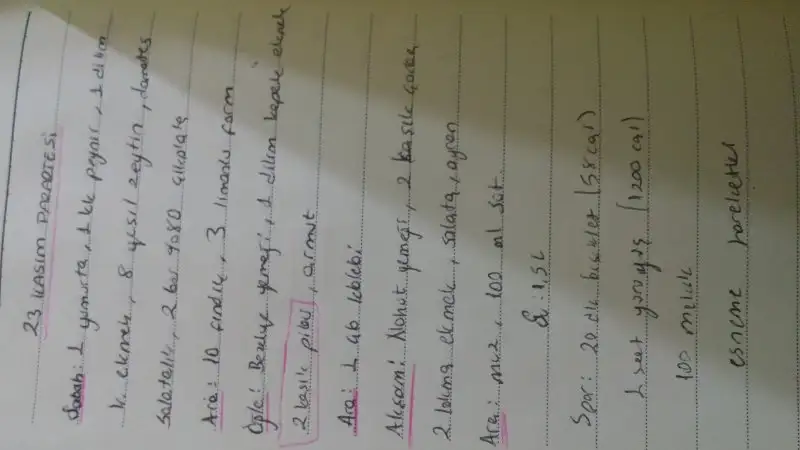 23 KASIM PAZARTESİ
Sabah: 1 yumurta, 1 kk peynir, 1 dilim
k. ekmek, 8 yeşil zeytin, domates
salatalık, 2 bar %80 çikolata
Ara: 10 fındık, 3 limonlu form
Öğle: Bezelye yemeği, 1 dilim kepek ekmek
2 kaşık pilav, armut
Ara: 1 ab leblebi
Akşam: Nohut yemeği, 2 kaşık
2 lokma ekmek, salata, ayran
Ara: muz, 100 ml süt
Su: 1,5 L
Spor: 20 dk bisiklet (58 cal)
1 saat yürüyüş (1200 cal)
100 mekik
esneme hareketleri